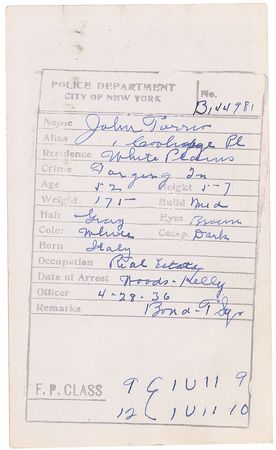 POLICE DEPARTMENT
CITY OF NEW YORK
No.
B,44981
Name John Torrio
Alias
1 Coolidge Pl
Residence White Plains
Crime In
Age 52 Height 5-7
Weight 175 Build Med
Hair Gray Eyes Brown
Color White Comp. Dark
Born Italy
Occupation Real Estate
Date of Arrest Woods-Kelly
Officer 4-28-36
Remarks Bond-F Sqr
F. P. CLASS 9 1 U 11 9
12 1 U 11 10